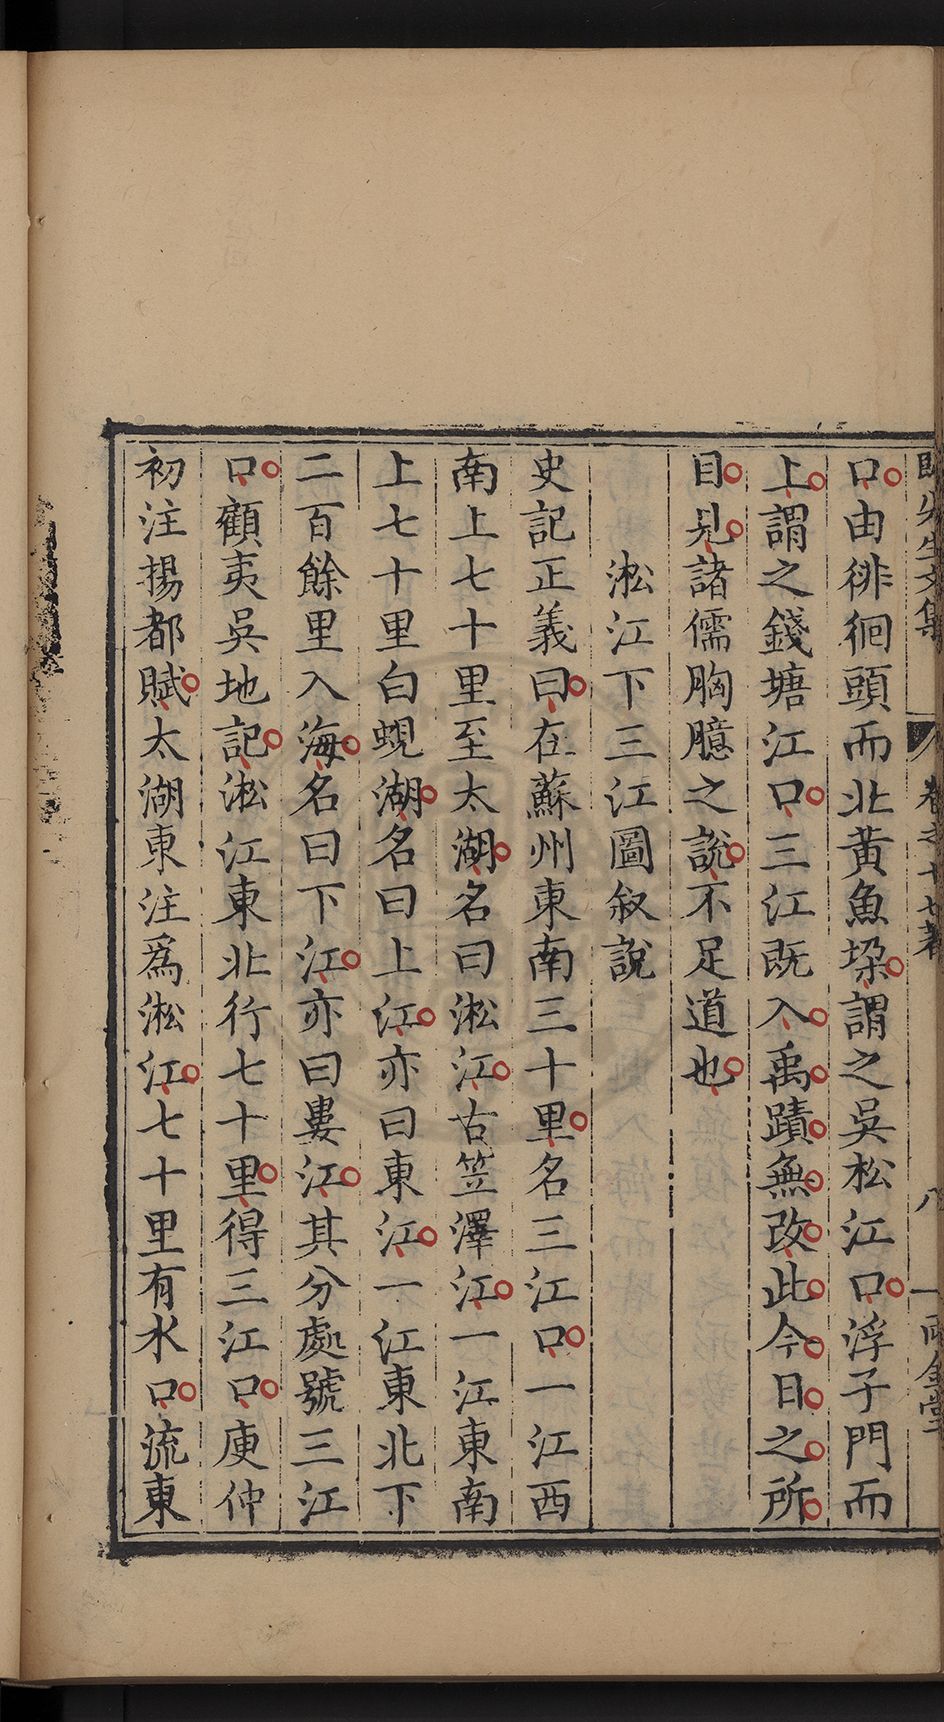 口由徘徊頭而北黃魚垜謂之吳松江口浮子門而
上謂之錢塘江口三江既入禹蹟無改此今日之所
目見諸儒胸臆之說不足道也
淞江下三江圖敘說
史記正義曰在蘇州東南三十里名三江口一江西
南上七十里至太湖名曰淞江古笠澤江一江東南
上七十里白蜆湖名曰上江亦曰東江一江東北下
二百餘里入海名曰下江亦曰婁江其分處號三江
口顧夷吳地記淞江東北行七十里得三江口庾仲
初注揚都賦太湖東注爲淞江七十里有水口流東